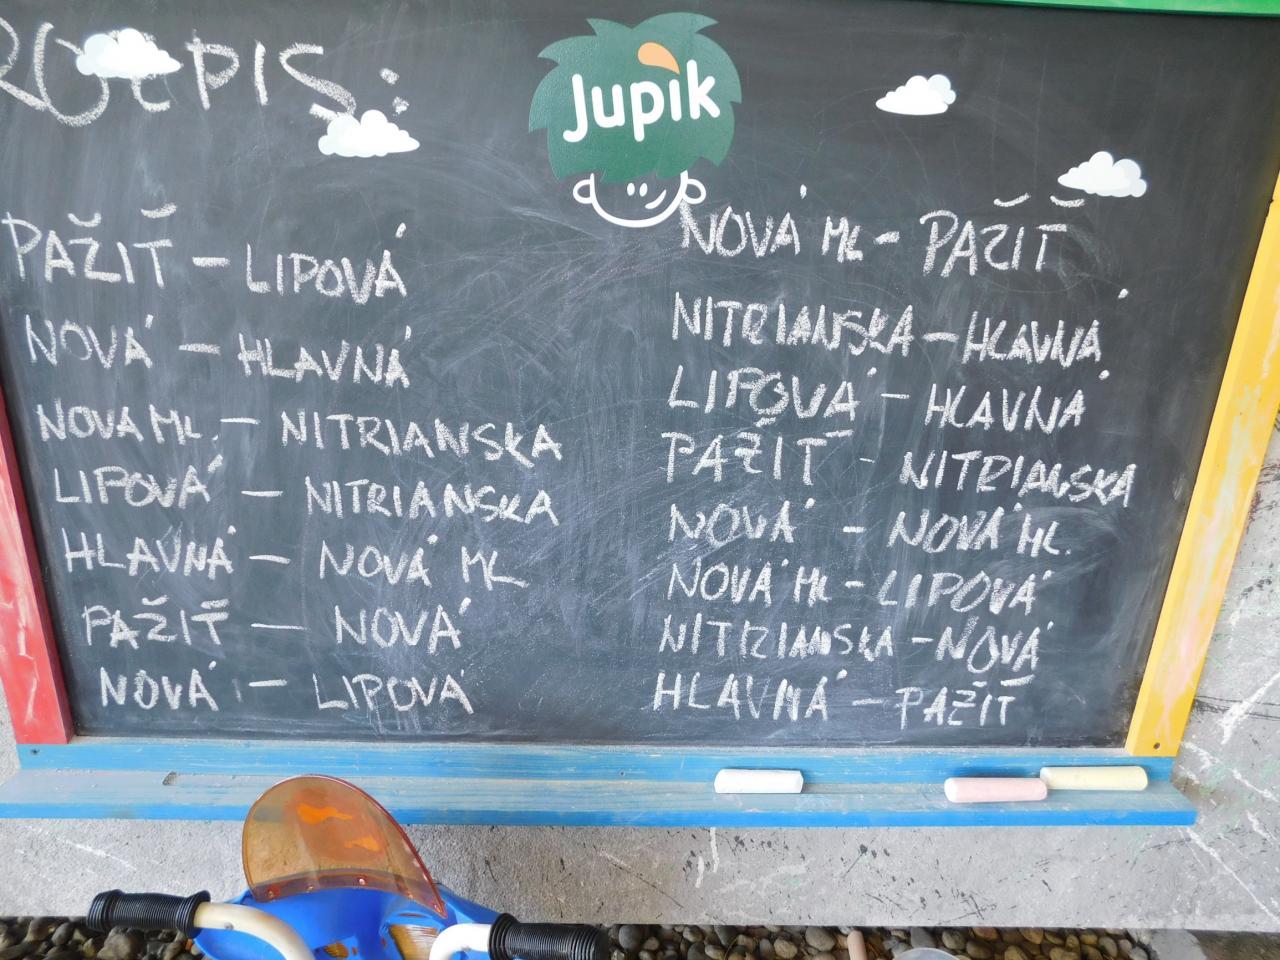 ROZPIS:
Jupík
PAŽIŤ – LIPOVÁ
NOVÁ – HLAVNÁ
NOVA ML. – NITRIANSKA
LIPOVÁ – NITRIANSKA
HLAVNÁ – NOVÁ ML
PAŽIŤ – NOVÁ
NOVÁ – LIPOVÁ
NOVÁ ML – PAŽIŤ
NITRIANSKA – HLAVNÁ
LIPOVÁ – HLAVNÁ
PAŽIŤ – NITRIANSKA
NOVÁ – NOVÁ ML.
NOVÁ ML – LIPOVÁ
NITRIANSKA – NOVÁ
HLAVNÁ – PAŽIŤ